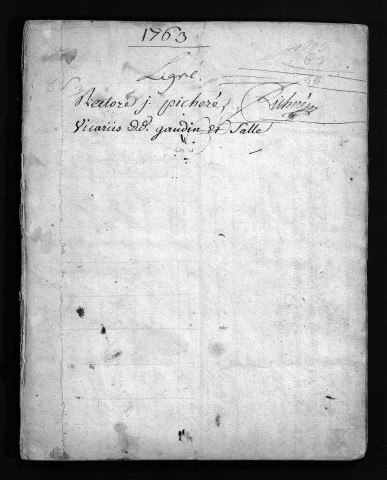 1763
Ligné
Rectore j. picheré, Picheré
Vicariis D.D. gaudin et Salle